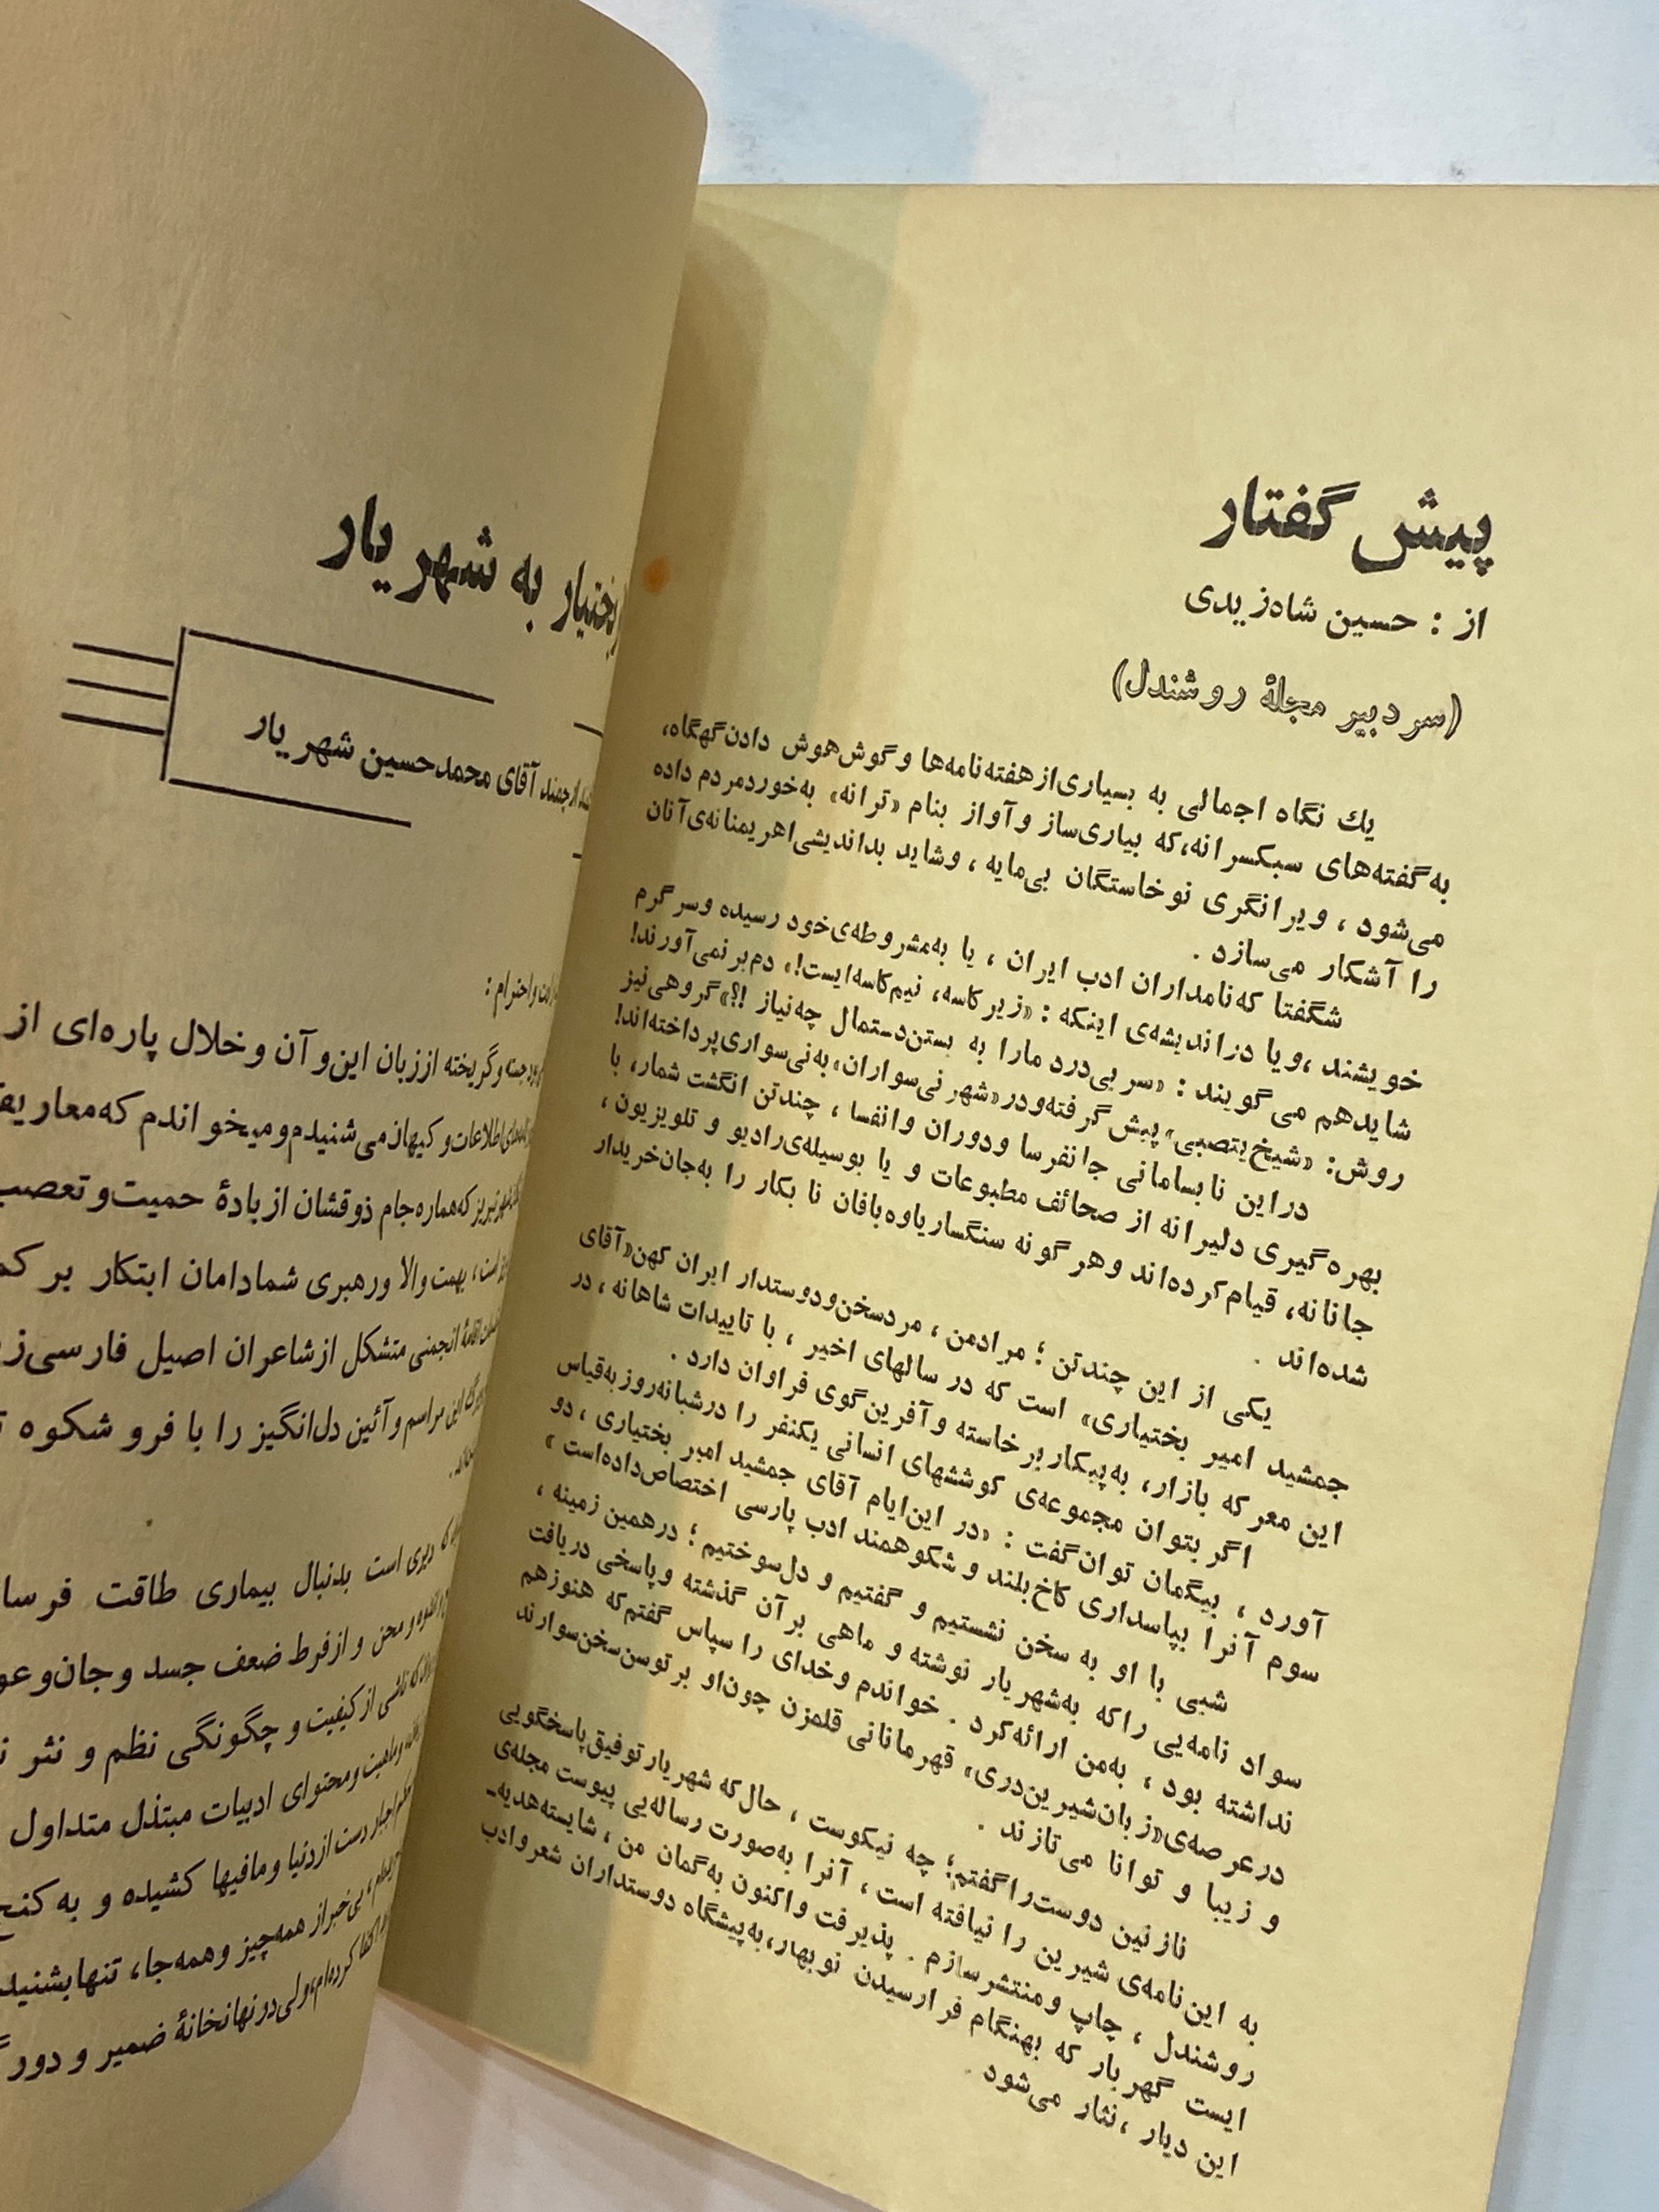 پیش گفتار
از : حسین شاه‌زیدی
(سردبیر مجلهٔ روشندل)
یك نگاه اجمالی به بسیاری‌از هفته‌نامه‌ها و گوش‌هوش دادن‌گهگاه،
به‌گفته‌های سبکسرانه،که بیاری‌ساز و آواز بنام «ترانه» به‌خورد‌مردم داده
می‌شود ، ویرانگری نوخاستگان بی‌مایه ، وشاید بداندیشی‌اهریمنانه‌ی‌آنان
را آشکار می‌سازد .
شگفتا که‌نامداران ادب ایران ، یا به‌مشروطه‌ی‌خود رسیده وسرگرم
خویشند ،ویا دراندیشه‌ی اینکه : «زیر کاسه، نیم‌کاسه‌ایست!» دم‌برنمی‌آورند!
شایدهم می‌گویند : «سر بی‌درد مارا به بستن‌دستمال چه‌نیاز !؟» گروهی‌نیز
روش: «شیخ‌یتصبی» پیش‌گرفته‌ودر«شهر نی‌سواران» به‌نی‌سواری‌پرداخته‌اند!
دراین نابسامانی جانفرسا ودوران وانفسا ، چندتن انگشت شمار، با
بهره‌گیری دلیرانه از صحائف مطبوعات و یا بوسیله‌ی‌رادیو و تلویزیون ،
جانانه، قیام‌کرده‌اند وهرگونه سنگسار‌یاوه‌بافان نا بکار را به‌جان‌خریدار
شده‌اند .
یکی از این چندتن ؛ مرادمن ، مردسخن‌ودوستدار ایران کهن«آقای
جمشید امیر بختیاری» است که در سالهای اخیر ، با تاییدات شاهانه ، در
این معرکه بازار، به‌پیکار‌برخاسته و آفرین‌گوی فراوان دارد .
اگر بتوان مجموعه‌ی کوششهای انسانی یکنفر را درشبانه‌روز به‌قیاس
آورد ، بیگمان توان‌گفت : «در این‌ایام آقای جمشید امیر بختیاری ، دو
سوم آنرا بپاسداری کاخ‌بلند و شکوهمند ادب پارسی اختصاص‌داده‌است »
شبی با او به سخن نشستیم و گفتیم و دل‌سوختیم ؛ درهمین زمینه ،
سواد نامه‌یی راکه به‌شهریار نوشته و ماهی برآن گذشته و پاسخی دریافت
نداشته بود ، به‌من ارائه‌کرد . خواندم وخدای را سپاس گفتم‌که هنوزهم
درعرصه‌ی«زبان‌شیرین‌دری» قهرمانانی قلمزن چون‌او بر توسن‌سخن‌سوارند
و زیبا و توانا می‌تازند .
نازنین دوست‌را گفتم؛ چه نیکوست ، حال‌که شهریار‌توفیق‌پاسخگویی
به این‌نامه‌ی شیرین را نیافته است ، آنرا به‌صورت رساله‌یی پیوست مجله‌ی
روشندل ، چاپ ومنتشرسازم . پذیرفت واکنون به‌گمان من ، شایسته‌هدیه‌ـ
ایست گهربار که بهنگام فرارسیدن نوبهار،به‌پیشگاه دوستداران شعروادب
این دیار ،نثار می‌شود .
بختیار به شهریار
ارجمند آقای محمدحسین شهریار
واحترام :
وگریخته اززبان این‌وآن وخلال پاره‌ای از
اطلاعات‌و کیهان‌می‌شنیدم‌ومیخواندم که‌معاریف
که‌هماره‌جام ذوقشان ازبادهٔ حمیت‌وتعصب
است، بهمت‌والا ورهبری شمادامان ابتکار بر کمر
انجمنی متشکل ازشاعران اصیل فارسی‌ز
مراسم وآئین دل‌انگیز را با فرو شکوه
دیری است بدنبال بیماری طاقت فرسا
ومحن و ازفرط ضعف جسد وجان‌وعو
ناشی ازکیفیت و چگونگی نظم و نثر
وماهیت ومحتوای ادبیات مبتذل متداول
دست ازدنیا ومافیها کشیده و به کنج
بی‌خبراز همه‌چیز وهمه‌جا، تنهابشنید
کرده‌ام،ولی‌درنهانخانهٔ ضمیر و دور